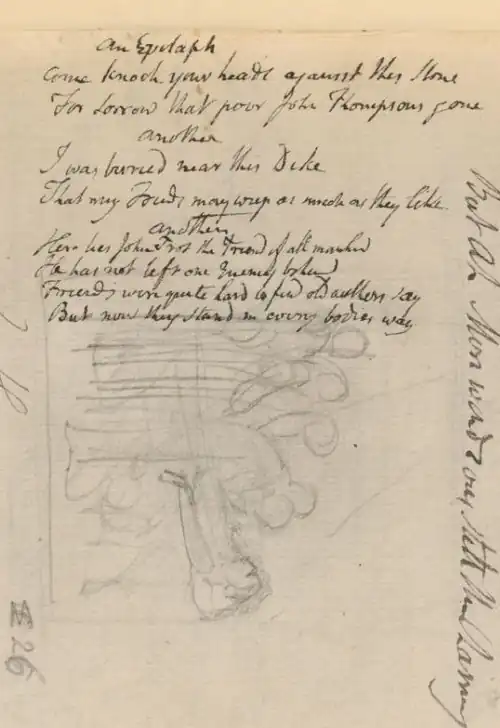 an Epitaph
Come knock your heads against this stone
For sorrow that poor John Thompsons gone
another
I was buried near this Dike
That my Friends may weep as much as they like
another
Here lies John Trot the Friend of all mankind
He has not left one Enemy behind
Friends were quite hard to find old authors say
But now they stand in every bodies way
But Ah More wondrous still the
E 26